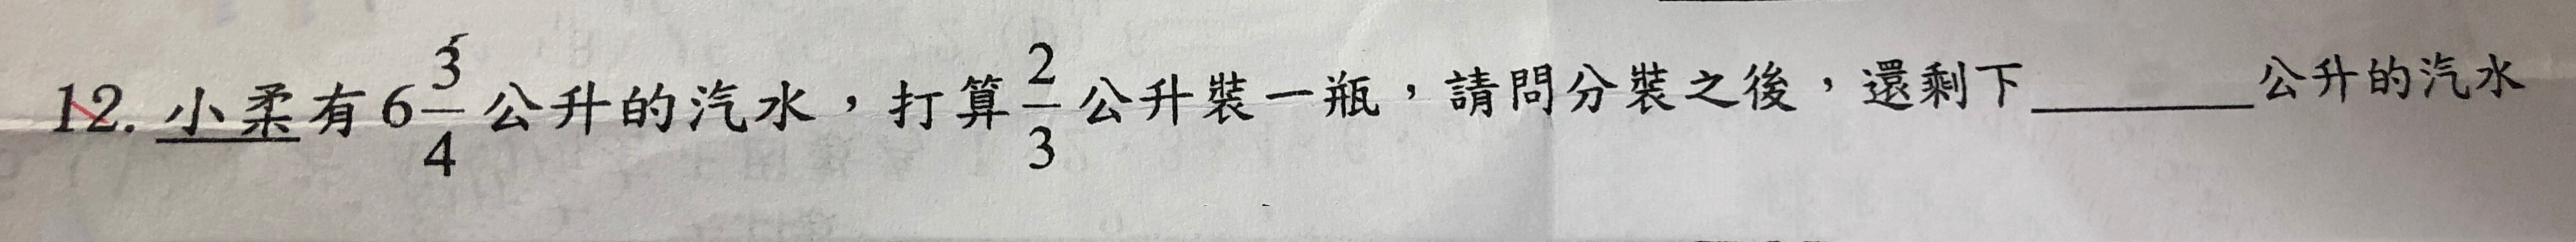 12. 小柔有6 3/4 公升的汽水，打算 2/3 公升裝一瓶，請問分裝之後，還剩下________公升的汽水